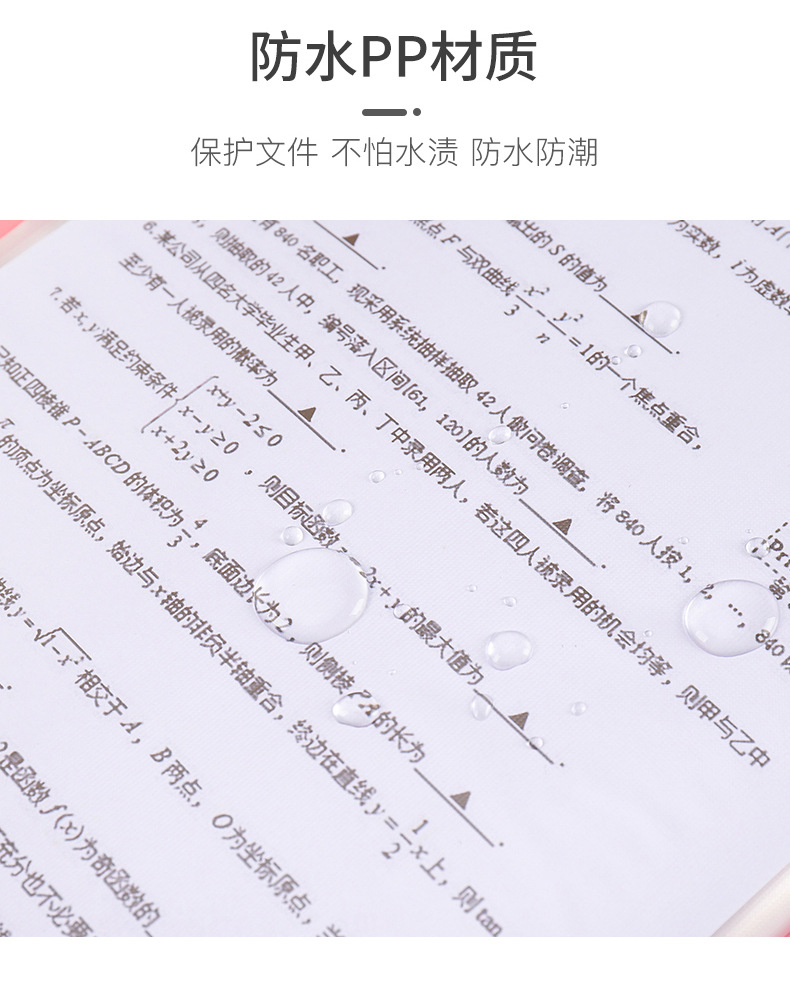 防水PP材质
保护文件 不怕水渍 防水防潮
为实数，i为虚数
输出的 S 的值为 ▲ .
点 F 与双曲线 x²/3 - y²/n = 1的一个焦点重合，
有 840 名职工，现采用系统抽样抽取 42 人做问卷调查，将 840 人按 1, 2, …, 840 随
，则抽取的 42 人中，编号落入区间[61，120]的人数为 ▲ .
6. 某公司从四名大学毕业生甲、乙、丙、丁中录用两人，若这四人被录用的机会均等，则甲与乙中
至少有一人被录用的概率为 ▲ .
7. 若 x, y 满足约束条件 { x+y-2≤0
x-y≥0
x+2y≥0 ，则目标函数 2x+y 的最大值为 ▲ .
已知正四棱锥 P-ABCD 的体积为 4/3，底面边长为2，则侧棱 PA 的长为 ▲ .
的顶点为坐标原点，始边与 x 轴的非负半轴重合，终边在直线 y = 1/2 x上，则 tan
线 y = √1-x² 相交于 A，B 两点，O 为坐标原点，当
是函数 f(x) 为奇函数的
充分也不必要